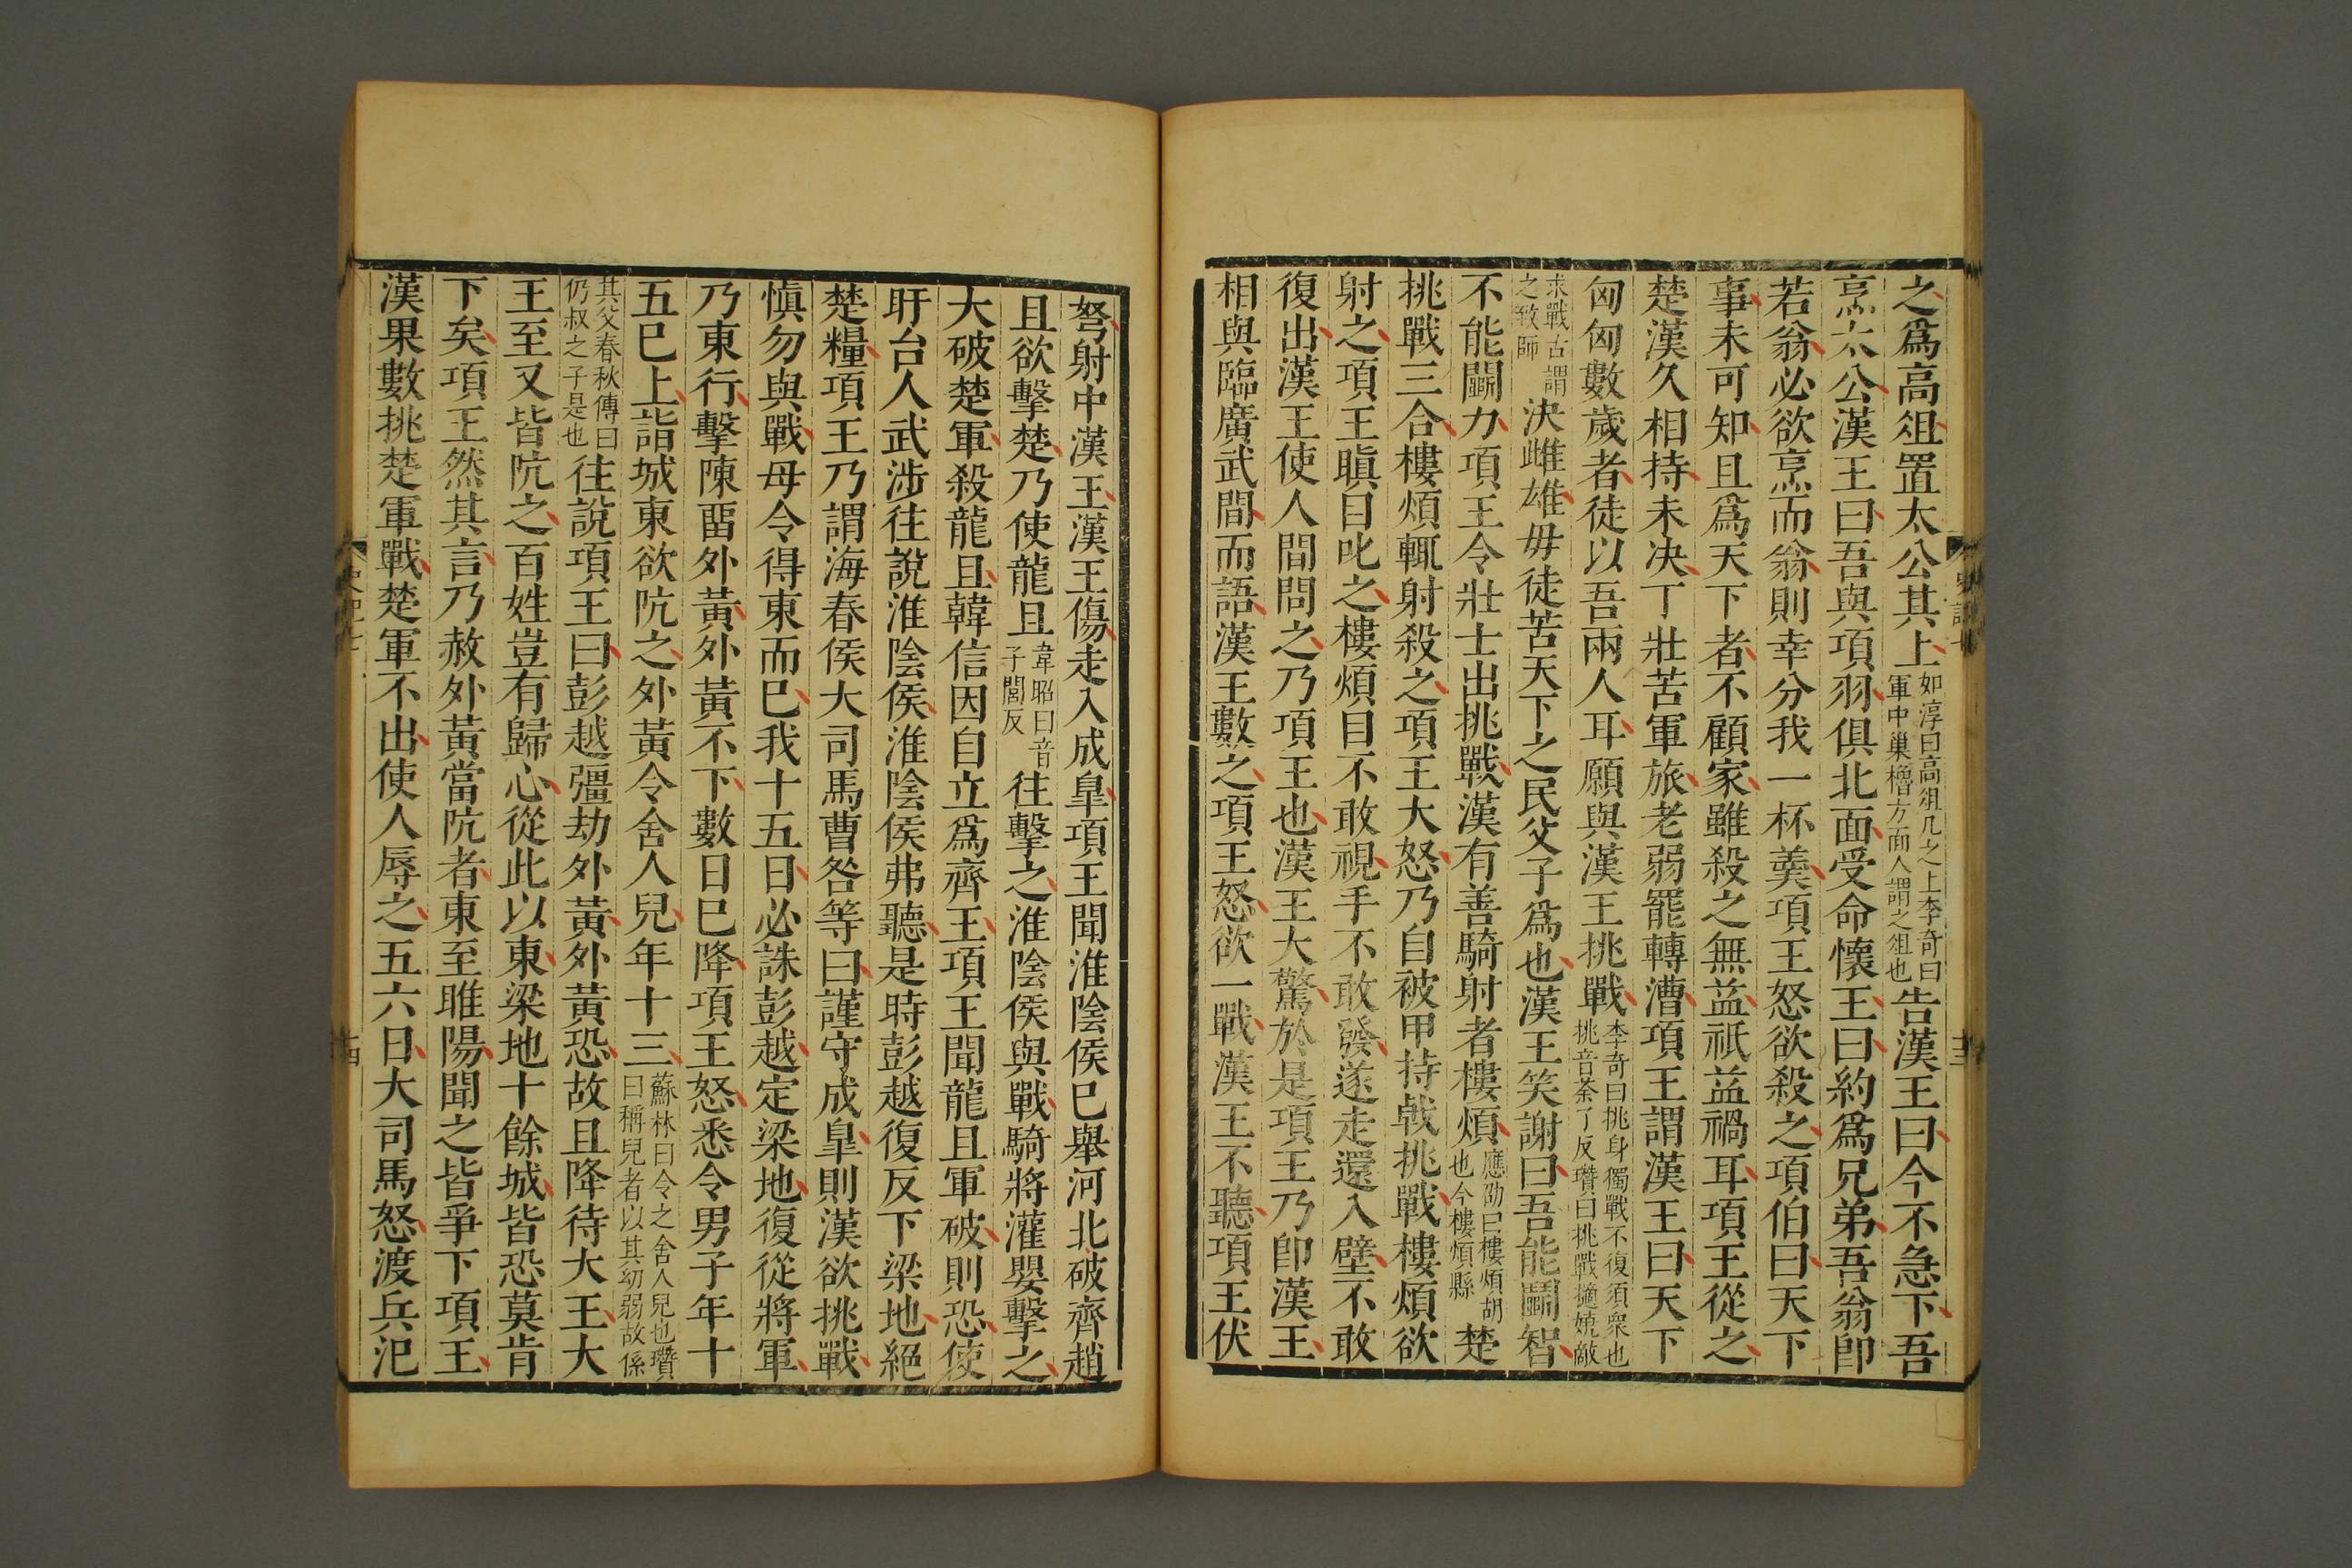 之爲高俎置太公其上如淳曰高俎几之上李奇曰軍中巢櫓方面人謂之俎也告漢王曰今不急下吾
烹太公漢王曰吾與項羽俱北面受命懷王曰約爲兄弟吾翁卽
若翁必欲烹而翁則幸分我一杯羹項王怒欲殺之項伯曰天下
事未可知且爲天下者不顧家雖殺之無益祇益禍耳項王從之
楚漢久相持未決丁壯苦軍旅老弱罷轉漕項王謂漢王曰天下
匈匈數歲者徒以吾兩人耳願與漢王挑戰李奇曰挑身獨戰不復須衆也挑音荼了反瓚曰挑戰擿嬈敵
求戰古謂之致師決雌雄毋徒苦天下之民父子爲也漢王笑謝曰吾能鬬智
不能鬬力項王令壯士出挑戰漢有善騎射者樓煩應劭曰樓煩胡也今樓煩縣楚
挑戰三合樓煩輒射殺之項王大怒乃自被甲持戟挑戰樓煩欲
射之項王瞋目叱之樓煩目不敢視手不敢發遂走還入壁不敢
復出漢王使人間問之乃項王也漢王大驚於是項王乃卽漢王
相與臨廣武間而語漢王數之項王怒欲一戰漢王不聽項王伏
弩射中漢王漢王傷走入成皐項王聞淮陰侯已舉河北破齊趙
且欲擊楚乃使龍且韋昭曰音子閭反往擊之淮陰侯與戰騎將灌嬰擊之
大破楚軍殺龍且韓信因自立爲齊王項王聞龍且軍破則恐使
盱台人武涉往說淮陰侯淮陰侯弗聽是時彭越復反下梁地絕
楚糧項王乃謂海春侯大司馬曹咎等曰謹守成皐則漢欲挑戰
愼勿與戰毋令得東而已我十五日必誅彭越定梁地復從將軍
乃東行擊陳畱外黃外黃不下數日已降項王怒悉令男子年十
五已上詣城東欲阬之外黃令舍人兒年十三蘇林曰令之舍人兒也瓚曰稱兒者以其幼弱故係
其父春秋傳曰仍叔之子是也往說項王曰彭越彊劫外黃外黃恐故且降待大王大
王至又皆阬之百姓豈有歸心從此以東梁地十餘城皆恐莫肯
下矣項王然其言乃赦外黃當阬者東至睢陽聞之皆爭下項王
漢果數挑楚軍戰楚軍不出使人辱之五六日大司馬怒渡兵汜